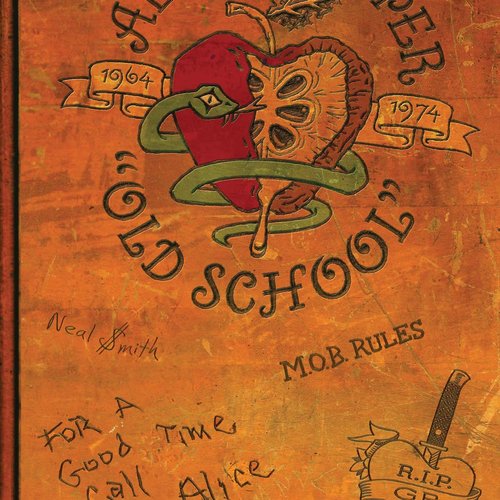 1964
1974
"OLD SCHOOL"
Neal $mith
M.O.B. RULES
FOR A
Good Time
Call Alice
R.I.P.